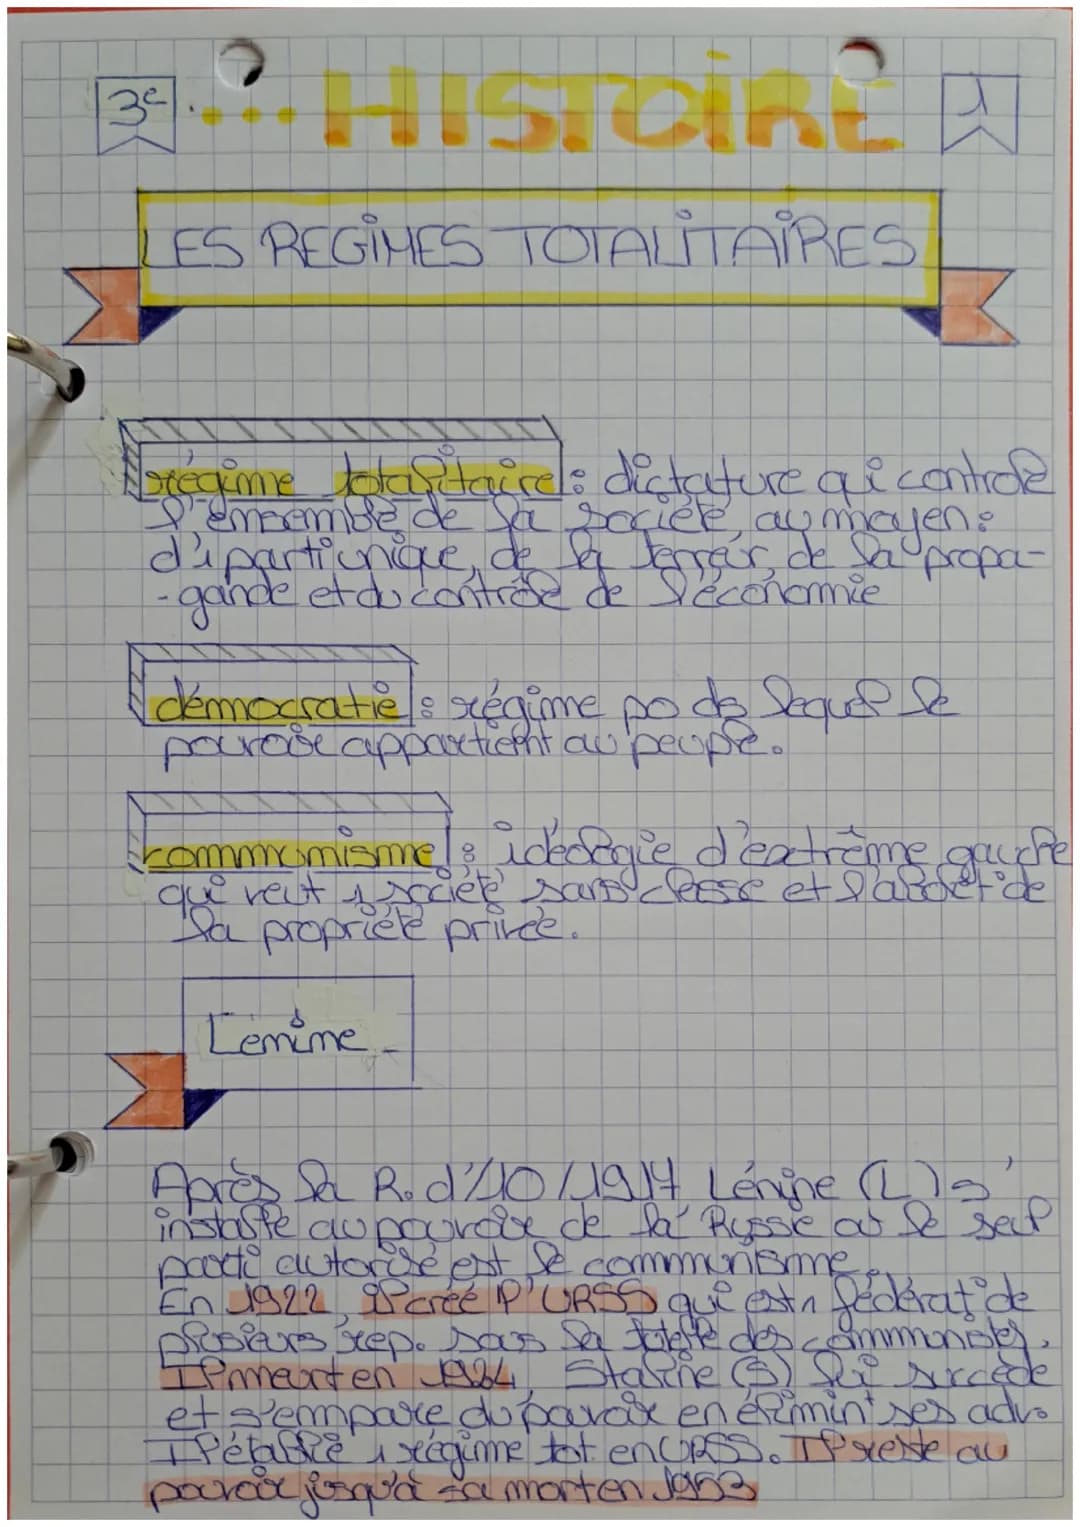 3e ... HISTOIRE 1
LES REGIMES TOTALITAIRES
régime totalitaire : dictature qui controle
l'ensemble de la société, au moyen :
d'1 parti unique, de la terreur, de la propa-
-gande et du contrôle de l'économie
démocratie : régime po ds lequel le
pouvoir appartient au peuple.
communisme : idéologie d'extrême gauche
qui veut 1 société sans classe et l'abolet° de
la propriété privée.
Lénine
Après la R. d'10/1917 Lénine (L) s'
installe au pouvoir de la Russe où le seul
parti autorisé est le communisme.
En 1922, il créé l'URSS qui est 1 fédérat° de
plusieurs rep. sous la tutelle des communistes.
Il meurt en 1924, Staline (S) lui succède
et s'empare du pouvoir en élimint ses adv.
Il établie 1 régime tot. en URSS. Il reste au
pouvoir jusqu'à sa mort en 1953